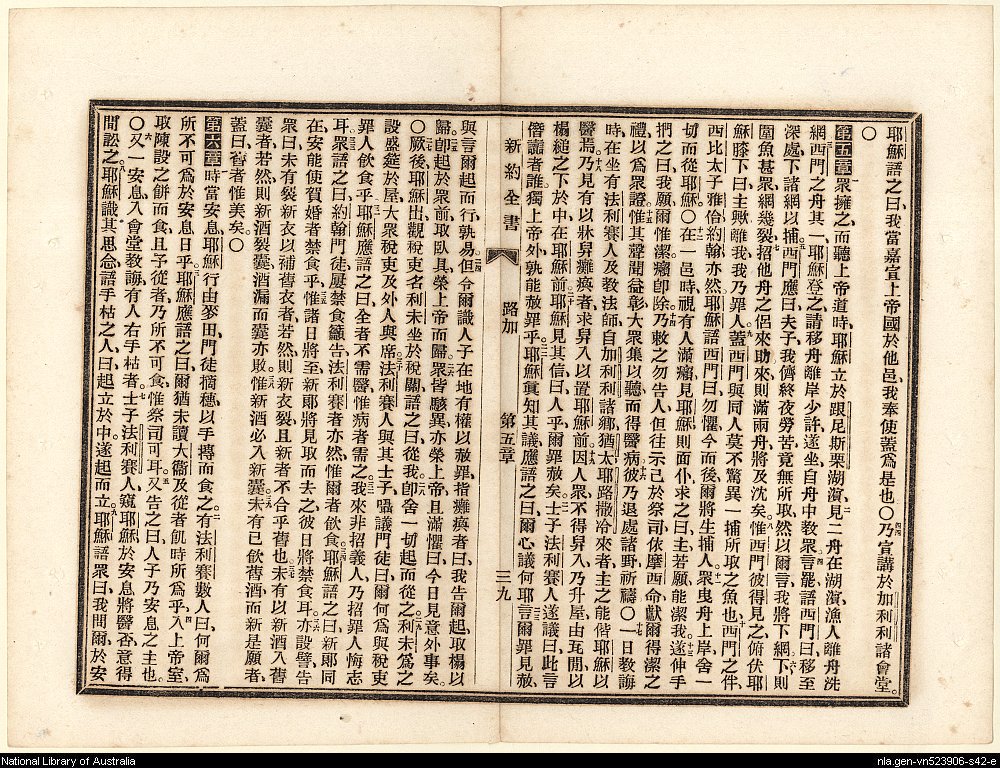 耶穌語之曰、我當嘉宣上帝國於他邑、我奉使蓋爲是也、〇乃宣講於加利利諸會堂。
〇
第五章 衆擁之而聽上帝道時、耶穌立於跟尼斯栗湖濵、見二舟在湖濵、漁人離舟洗
網、西門之舟其一、耶穌登之、請移舟離岸少許、遂坐、自舟中教衆、言罷、語西門曰、移至
深處下諸網以捕、西門應曰、夫子、我儕終夜勞苦、竟無所取、然以爾言、我將下網、下則
圍魚甚衆、網幾裂、招他舟之侶來助、來則滿兩舟、將及沈矣、惟西門彼得見之、俯伏耶
穌膝下曰、主歟、離我、我乃罪人、蓋西門與同人、莫不驚異一捕所取之魚也、西門之伴
西比太子雅各約翰亦然、耶穌語西門曰、勿懼、今而後爾將生捕人、衆曳舟上岸、舍一
切而從耶穌、〇在一邑時、視有人滿瘺、見耶穌則面仆求之曰、主若願、能潔我、遂伸手
捫之曰、我願、爾惟潔、瘺卽除、乃敕之勿告人、但往示己於祭司、依摩西命獻爾得潔之
禮、以爲衆證、惟其聲聞益彰、大衆集以聽、而得醫病、彼乃退處諸野祈禱、〇一日教誨
時、在坐有法利賽人及教法師、自加利利諸鄉、猶太耶路撒冷來者、主之能偕耶穌以
醫焉、乃見有以牀舁癱瘓者、求舁入以置耶穌前、因人衆不得舁入、乃升屋由瓦閒以
榻縋之下於中、在耶穌前、耶穌見其信曰、人乎、爾罪赦矣、士子法利賽人遂議曰、此言
僭讟者誰、獨上帝外孰能赦罪乎、耶穌眞知其議、應語之曰、爾心議何耶、言爾罪見赦、
新約全書 路加 第五章 三九
與言爾起而行孰易、但令爾識人子在地有權以赦罪、指癱瘓者曰、我告爾、起、取榻以
歸、卽起於衆前、取臥具、榮上帝而歸、衆皆駭異、亦榮上帝、且滿懼曰、今日見意外事矣。
〇厥後耶穌出、觀稅吏名利未、坐於稅關、語之曰、從我、卽舍一切、起而從之、利未爲之
設盛筵於屋、大衆稅吏及外人與席、法利賽人與其士子囁議門徒曰、爾何爲與稅吏
罪人飲食乎、耶穌應語之曰、全者不需醫、惟病者需之、我來非招義人、乃招罪人悔志
耳、衆語之曰、約翰門徒屢禁食籲告、法利賽者亦然、惟爾者飲食、耶穌語之曰、新郞同
在、安能使賀婚者禁食乎、惟諸日將至、新郞將見取而去之、彼日將禁食耳、亦設譬告
衆曰、未有裂新衣以補舊衣者、若然則新衣裂、且新者不合乎舊也、未有以新酒入舊
囊者、若然則新酒裂囊、酒漏而囊亦敗、惟新酒必入新囊、未有已飲舊酒而新是願者、
蓋曰、舊者惟美矣。〇
第六章 時當安息、耶穌行由麥田、門徒摘穗、以手搏而食之、有法利賽數人曰、何爾爲
所不可爲於安息日乎、耶穌應語之曰、爾猶未讀大衞及從者飢時所爲乎、入上帝室、
取陳設之餅而食、且予從者、乃所不可食、惟祭司可耳、又告之曰、人子乃安息之主也。
〇又一安息、入會堂教誨、有人右手枯者、士子法利賽人窺耶穌於安息將醫否、意得
間訟之、耶穌識其思念、語手枯之人曰、起立於中、遂起而立、耶穌語衆曰、我問爾、於安
National Library of Australia
nla.gen-vn523906-s42-e